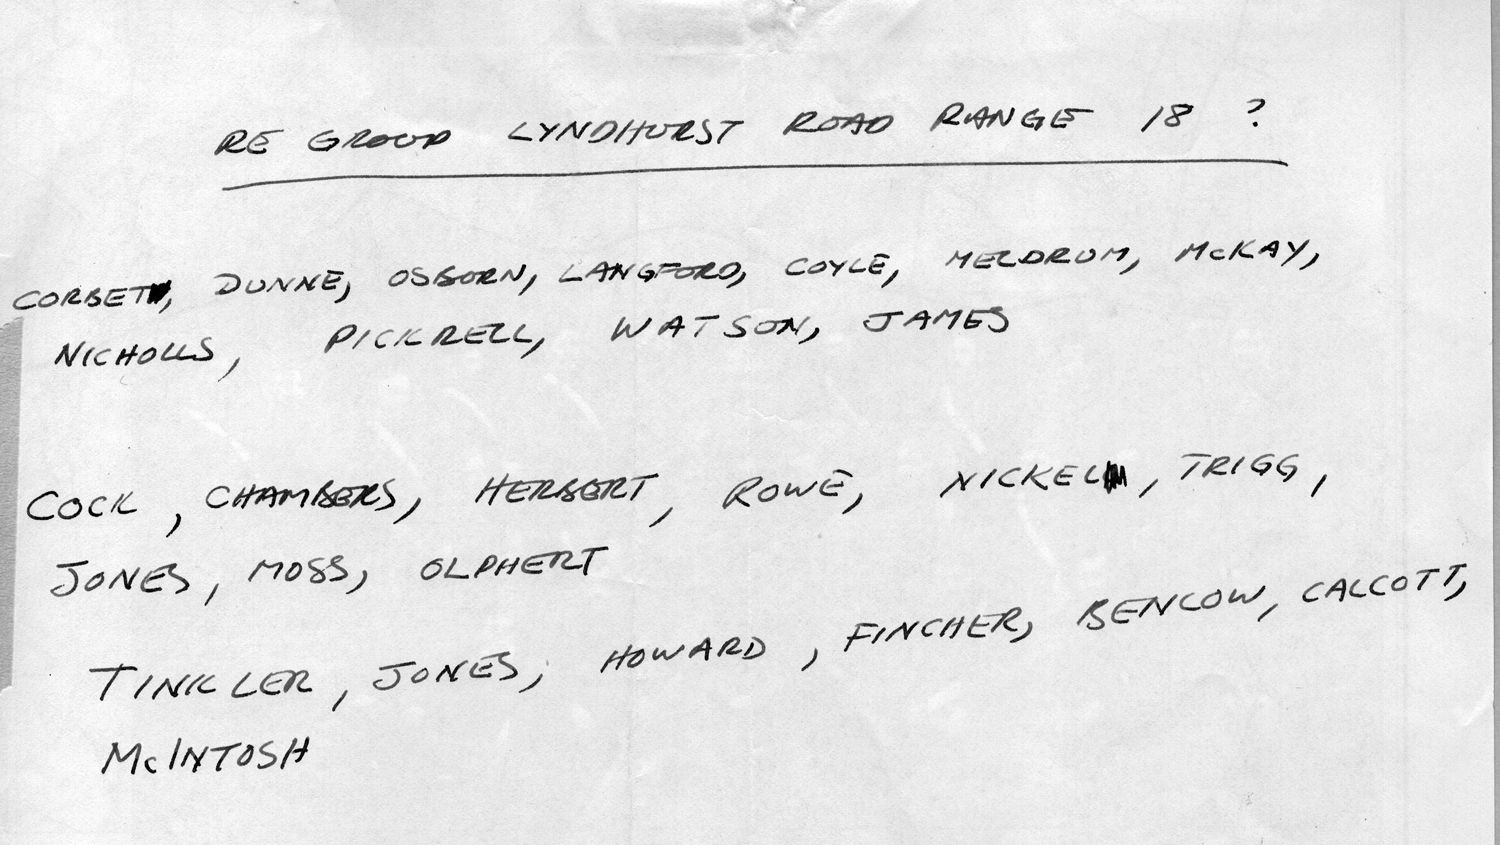 RE GROUP LYNDHURST ROAD RANGE 18 ?
CORBET, DUNNE, OSBORN, LANGFORD, COYLE, MELDRUM, McKAY,
NICHOLLS, PICKRELL, WATSON, JAMES
COCK, CHAMBERS, HERBERT, ROWE, NICKEL, TRIGG,
JONES, MOSS, OLPHERT
TINKLER, JONES, HOWARD, FINCHER, BENCOW, CALCOTT,
McINTOSH